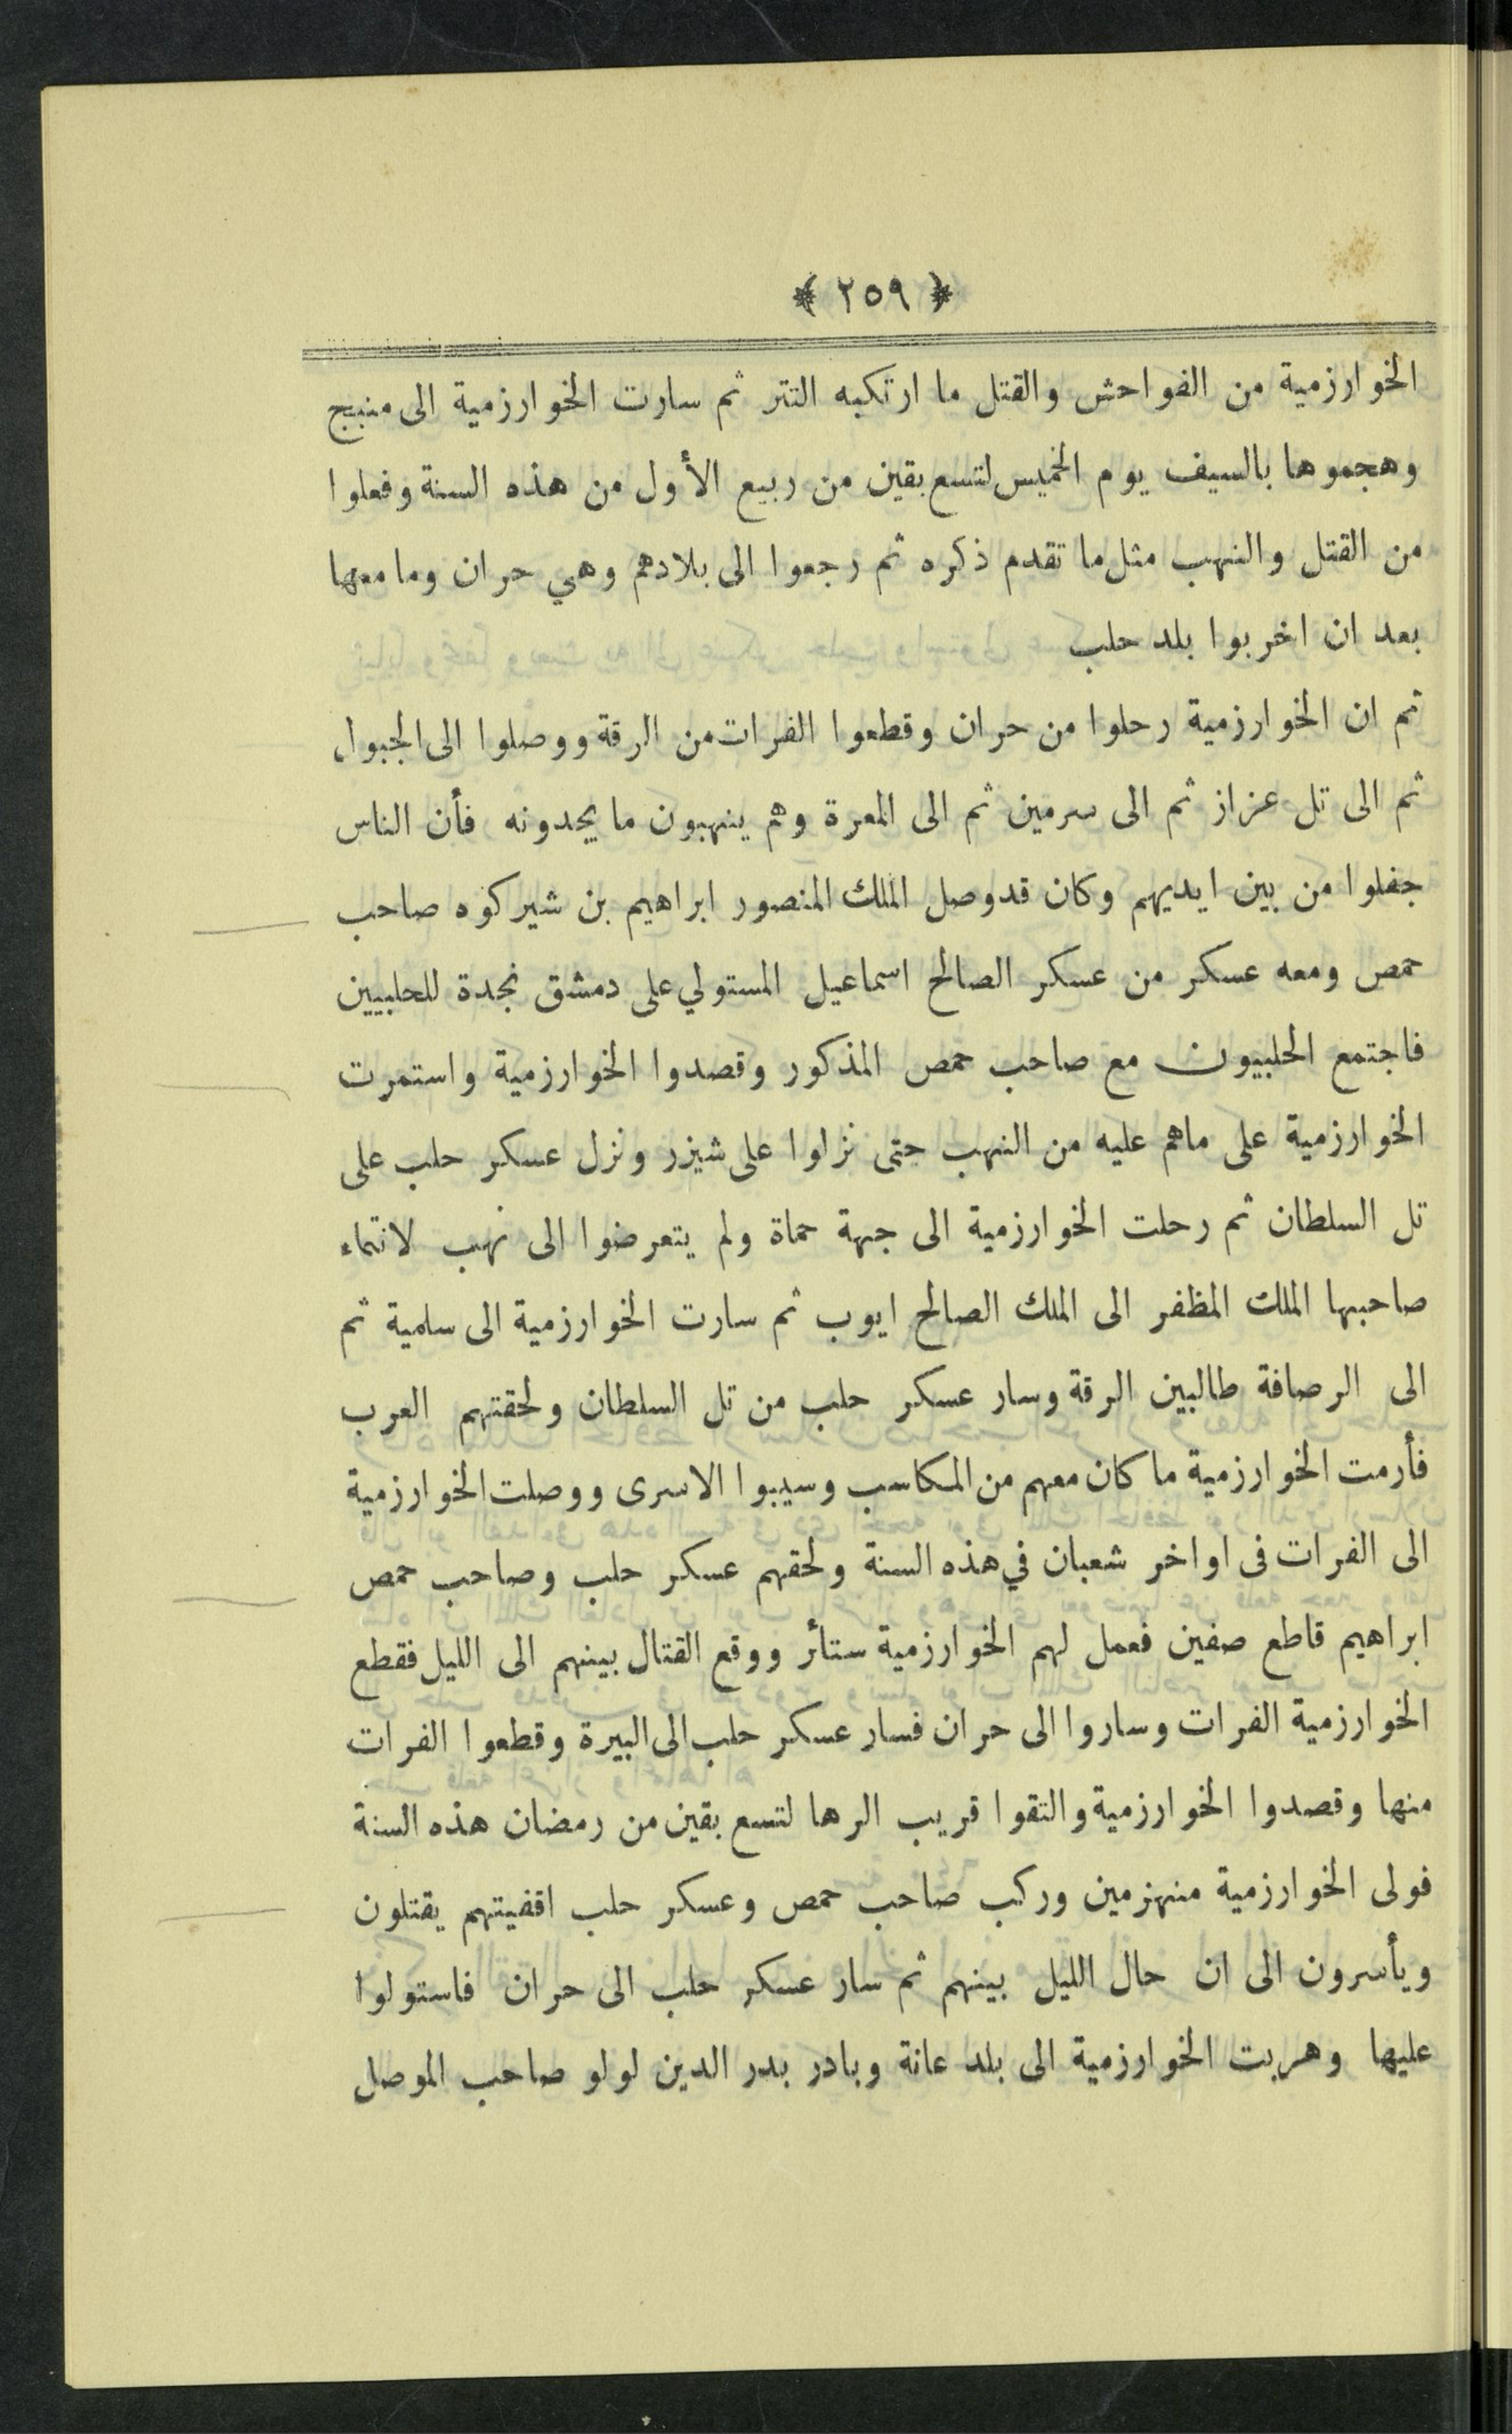 ﴿ ٢٥٩ ﴾
الخوارزمية من الفواحش والقتل ما ارتكبه التتر ثم سارت الخوارزمية الى منبج
وهجموها بالسيف يوم الخميس لتسع بقين من ربيع الأول من هذه السنة وفعلوا
من القتل والنهب مثل ما تقدم ذكره ثم رجعوا الى بلادهم وهي حران وما معها
بعد ان اخربوا بلد حلب
ثم ان الخوارزمية رحلوا من حران وقطعوا الفرات من الرقة ووصلوا الى الجبول
ثم الى تل عزاز ثم الى سرمين ثم الى المعرة وهم ينهبون ما يجدونه فأن الناس
جفلوا من بين ايديهم وكان قد وصل الملك المنصور ابراهيم بن شيركوه صاحب
حمص ومعه عسكر من عسكر الصالح اسماعيل المستولي على دمشق نجدة للحلبيين
فاجتمع الحلبيون مع صاحب حمص المذكور وقصدوا الخوارزمية واستمرت
الخوارزمية على ماهم عليه من النهب حتى نزلوا على شيزر ونزل عسكر حلب على
تل السلطان ثم رحلت الخوارزمية الى جهة حماة ولم يتعرضوا الى نهب لانتماء
صاحبها الملك المظفر الى الملك الصالح ايوب ثم سارت الخوارزمية الى سلمية ثم
الى الرصافة طالبين الرقة وسار عسكر حلب من تل السلطان ولحقتهم العرب
فأرمت الخوارزمية ما كان معهم من المكاسب وسيبوا الاسرى ووصلت الخوارزمية
الى الفرات فى اواخر شعبان في هذه السنة ولحقهم عسكر حلب وصاحب حمص
ابراهيم قاطع صفين فعمل لهم الخوارزمية ستائر ووقع القتال بينهم الى الليل فقطع
الخوارزمية الفرات وساروا الى حران فسار عسكر حلب الى البيرة وقطعوا الفرات
منها وقصدوا الخوارزمية والتقوا قريب الرها لتسع بقين من رمضان هذه السنة
فولى الخوارزمية منهزمين وركب صاحب حمص وعسكر حلب اقفيتهم يقتلون
ويأسرون الى ان حال الليل بينهم ثم سار عسكر حلب الى حران فاستولوا
عليها وهربت الخوارزمية الى بلد عانة وبادر بدر الدين لولو صاحب الموصل